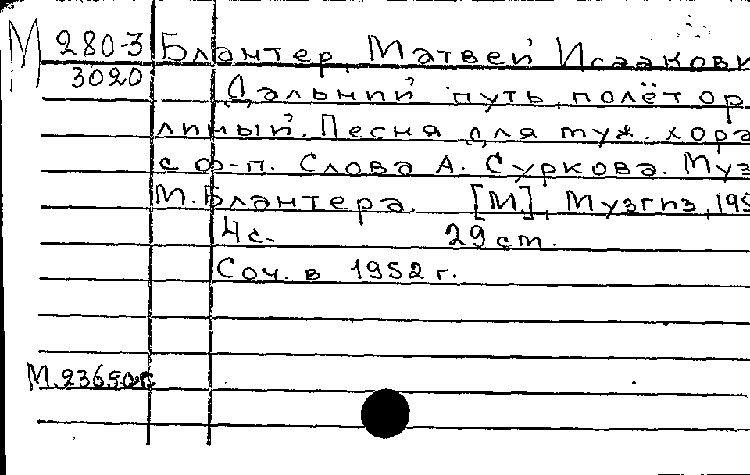 М 280-3 Блантер, Матвей Исаакови
3020 Дальний путь, полёт ор
линый. Песня для муж. хора
с ф-п. Слова А. Суркова. Муз
М. Блантера. [М], Музгиз, 195
4с. 29 cm.
Соч. в 1952 г.